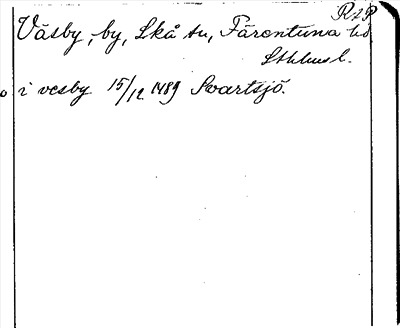 RAP
Väsby, by, Skå sn, Färentuna hd
Sthlms l.
o i vesby 15/12 1489 Svartsjö.